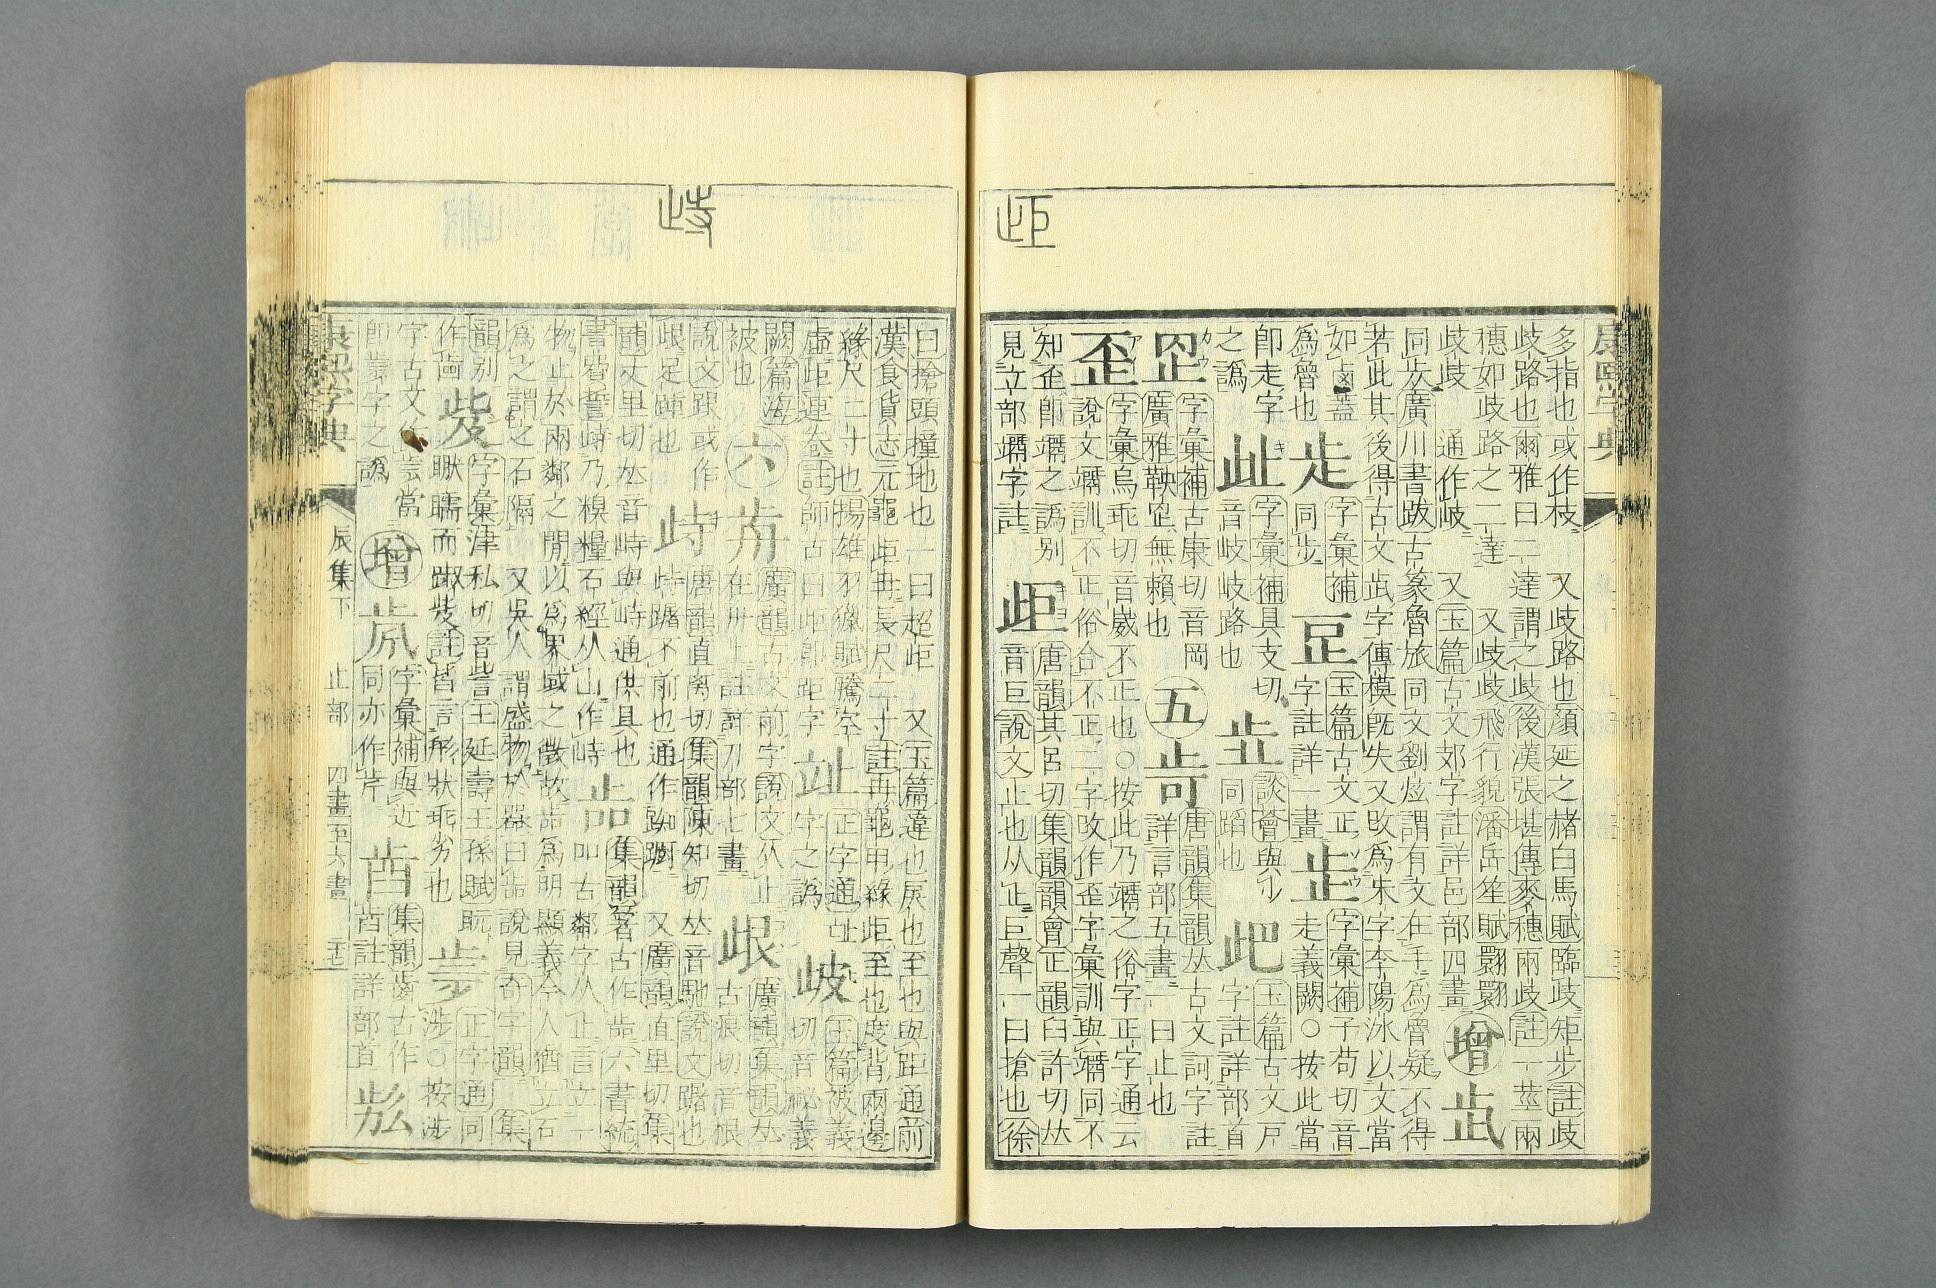 歫
康熙字典
多指也或作枝 又歧路也顏延之赭白馬賦臨歧矩步註歧
歧路也爾雅曰二達謂之歧後漢張堪傳麥穗兩歧註一莖兩
穗如歧路之二達 又歧歧飛行貌潘岳笙賦翾翾
歧歧 通作岐 又玉篇古文郊字註詳邑部四畫
增
同㱐廣川書跋古篆魯旅同文劉炫謂有文在手為魯疑不得
若此其後得古文㱐字傳模既失又改為宋字李陽冰以文當
如鹵蓋
為魯也
字彙補
同步
玉篇古文正
字註詳一畫
字彙補子苟切音
走義闕○按此當
卽走字
之譌
字彙補具支切
音岐岐路也
談薈與少
同蹈也
玉篇古文戶
字註詳部首
字彙補古康切音岡
廣雅鞅罡無賴也
五
唐韻集韻𠀤古文訶字註
詳言部五畫 一曰止也
歪
字彙烏乖切音崴不正也○按此乃竵之俗字正字通云
說文竵訓不正俗合不正二字改作歪字彙訓與竵同不
知歪卽竵之譌別
見立部竵字註
歫
唐韻其呂切集韻韻會正韻臼許切𠀤
音巨說文止也从止巨聲一曰搶也徐
歭
曰搶頭撞地也 一曰超歫 又玉篇違也戾也至也與距通前
漢食貨志元龜歫冉長尺二寸註冉龜甲緣歫至也度背兩邊
緣尺二寸也揚雄羽獵賦騰空
虛歫連卷註師古曰歫卽距字
正字通址
字之譌
玉篇被義
切音祕義
闕篇海
被也
六
歬
廣韻古文前字說文从止
在舟上註詳刀部七畫
廣韻集韻𠀤
古痕切音根
說文跟或作
跟足踵也
歭
唐韻直离切集韻陳知切𠀤音馳說文䠧也
歭䠧不前也通作踟躕 又廣韻直里切集
韻丈里切𠀤音峙與峙通供具也
書費誓峙乃糗糧石經从山作峙
㱑
集韻著古作㱑六書統
叫古鄰字从止言立一
物止於兩鄰之閒以為界域之徵故㱑為明顯義今人猶立石
為之謂之石隔 又吳人謂盛物於器曰㱑說見奇字韻 集
韻別
作
字彙津私切音訾王延壽王孫賦
而踧 註皆言形狀乖劣也
正字通同
涉○按涉
字古文作 當
卽 字之譌
增
字彙補與近
同亦作芹
集韻齒古作
註詳部首
康熙字典
辰集下
止部
四畫至六畫